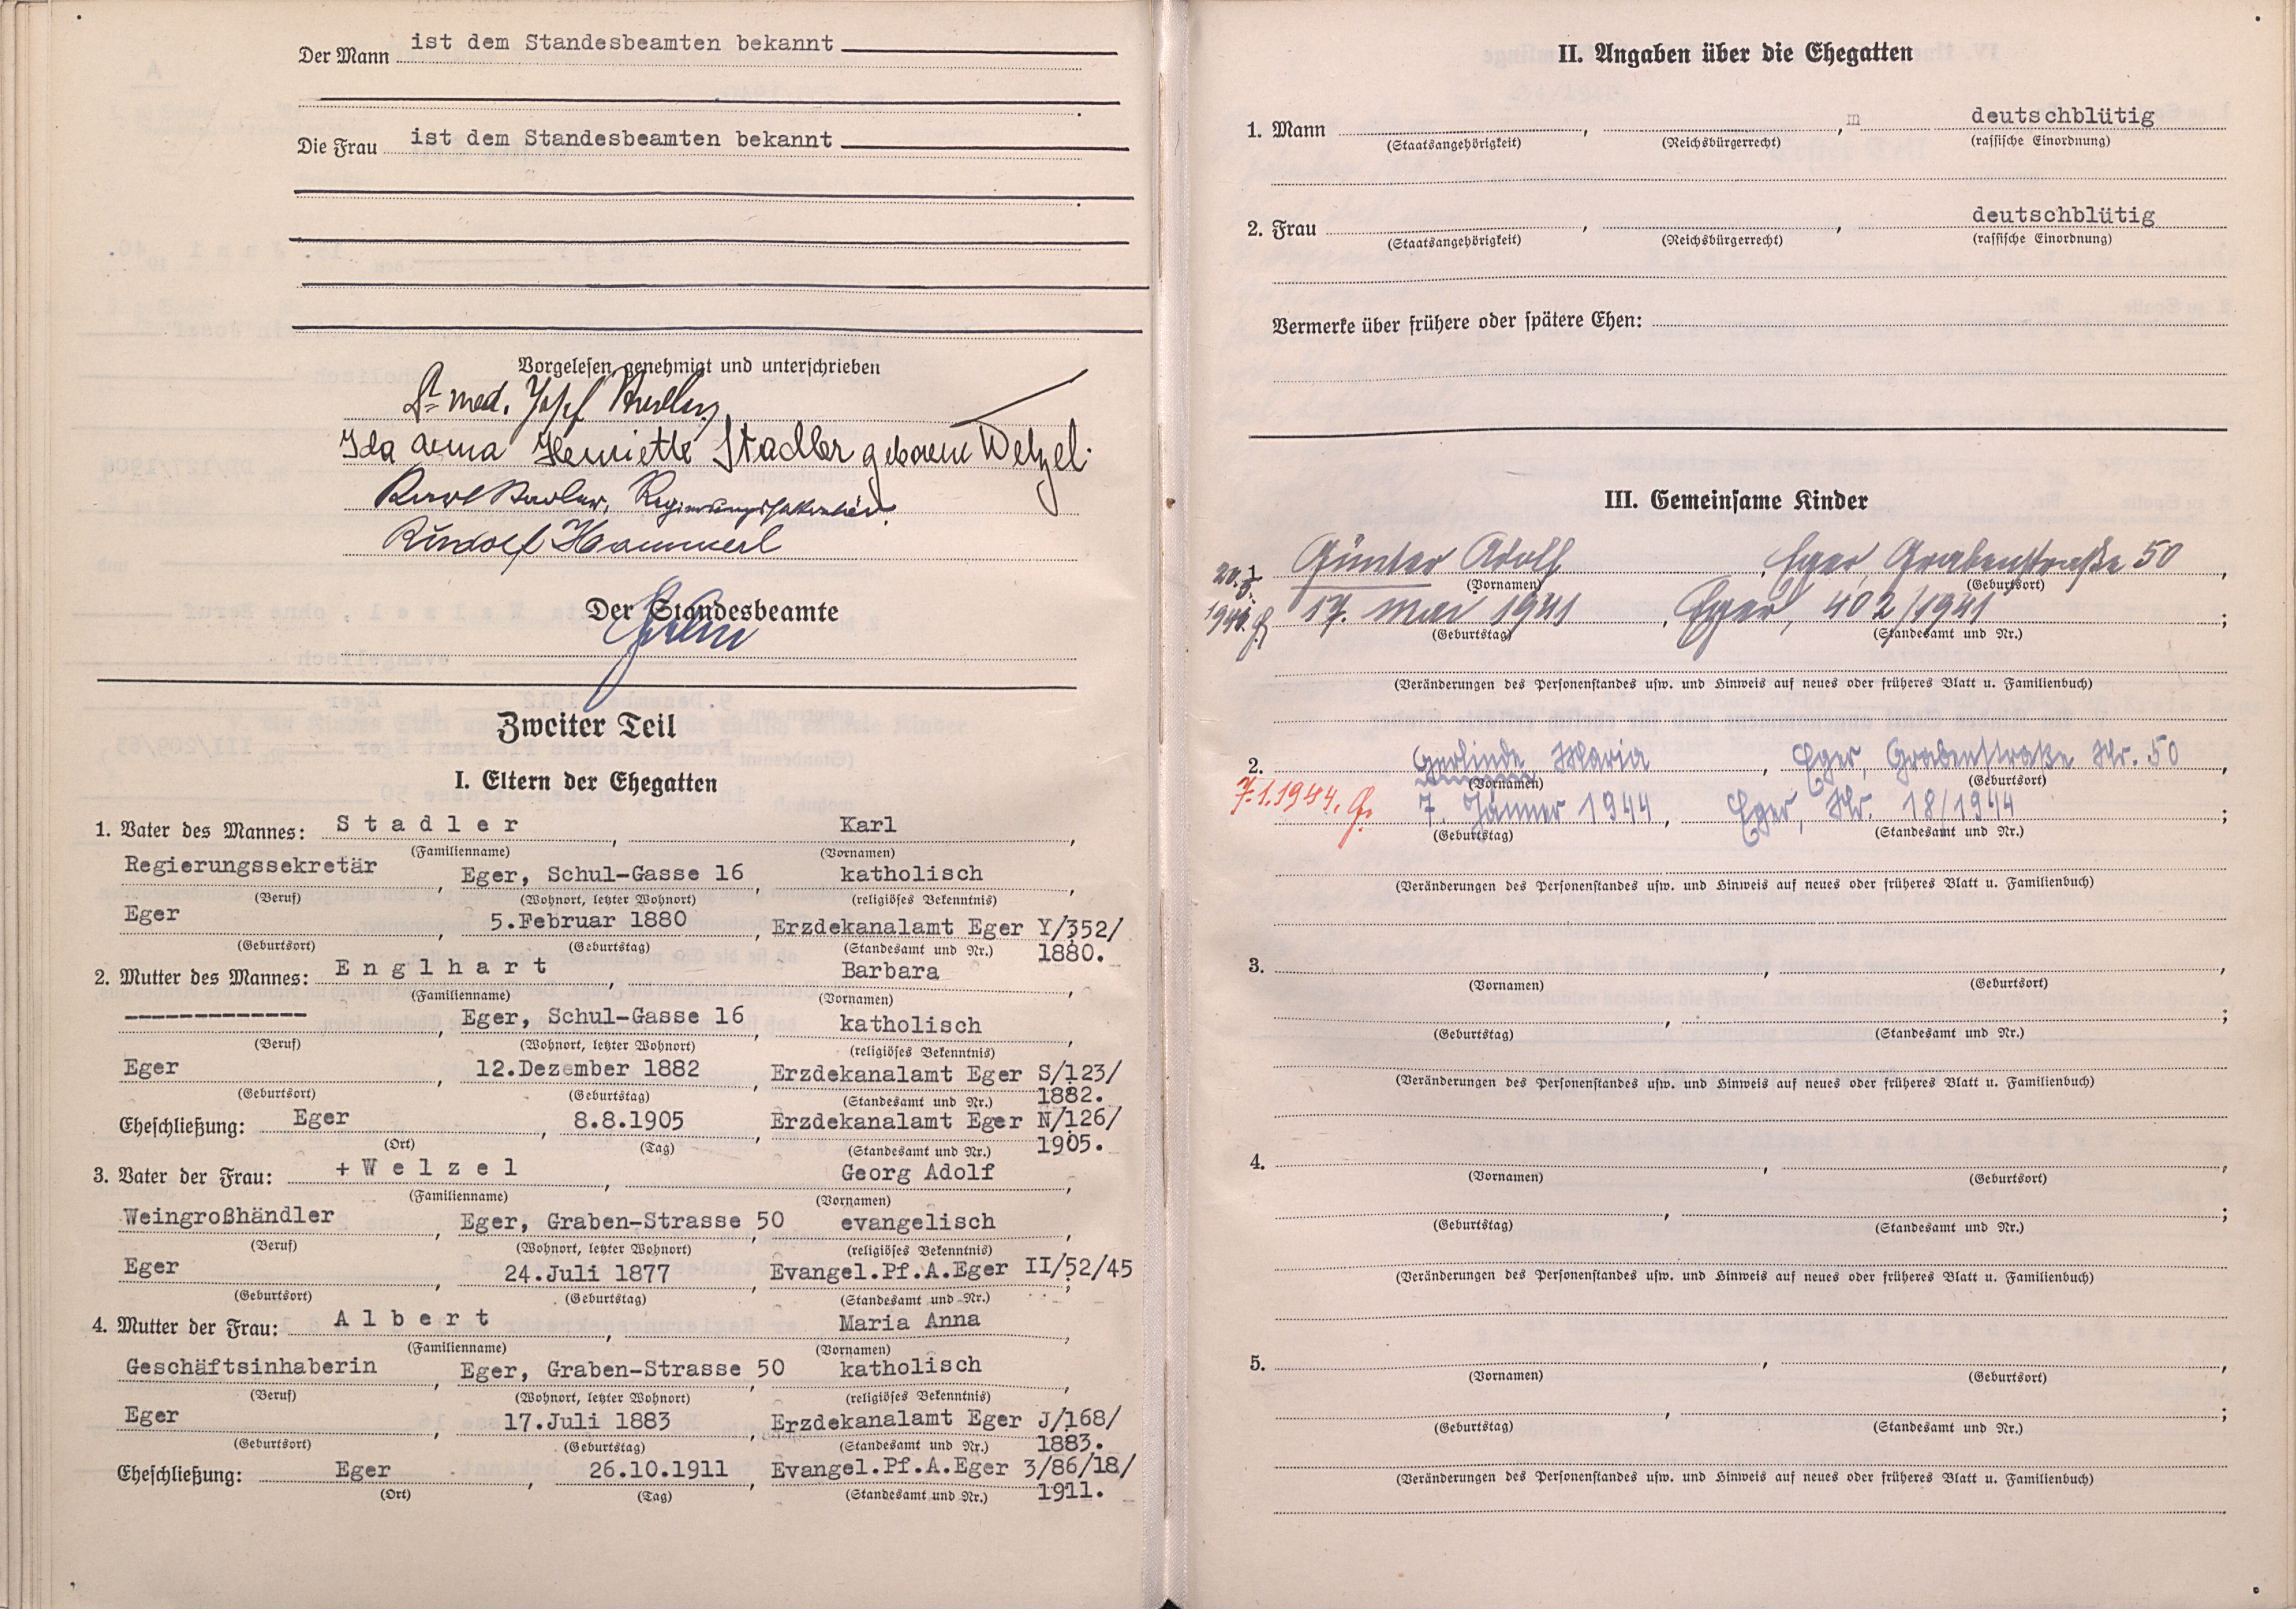 Der Mann ist dem Standesbeamten bekannt
Die Frau ist dem Standesbeamten bekannt
Vorgelesen, genehmigt und unterschrieben
Dr med. Josef Stadler
Ida Anna Henriette Stadler geborene Welzel.
Karl Stadler, Regierungssekretär.
Rudolf Hammerl
Der Standesbeamte
Zweiter Teil
I. Eltern der Ehegatten
1. Vater des Mannes: Stadler, Karl,
(Familienname) (Vornamen)
Regierungssekretär, Eger, Schul-Gasse 16, katholisch,
(Beruf) (Wohnort, letzter Wohnort) (religiöses Bekenntnis)
Eger, 5.Februar 1880, Erzdekanalamt Eger Y/352/
(Geburtsort) (Geburtstag) (Standesamt und Nr.) 1880.
2. Mutter des Mannes: Englhart, Barbara,
(Familienname) (Vornamen)
-------------, Eger, Schul-Gasse 16, katholisch,
(Beruf) (Wohnort, letzter Wohnort) (religiöses Bekenntnis)
Eger, 12.Dezember 1882, Erzdekanalamt Eger S/123/
(Geburtsort) (Geburtstag) (Standesamt und Nr.) 1882.
Eheschließung: Eger, 8.8.1905, Erzdekanalamt Eger N/126/
(Ort) (Tag) (Standesamt und Nr.) 1905.
3. Vater der Frau: +Welzel, Georg Adolf,
(Familienname) (Vornamen)
Weingroßhändler, Eger, Graben-Strasse 50, evangelisch,
(Beruf) (Wohnort, letzter Wohnort) (religiöses Bekenntnis)
Eger, 24.Juli 1877, Evangel.Pf.A.Eger II/52/45;
(Geburtsort) (Geburtstag) (Standesamt und Nr.)
4. Mutter der Frau: Albert, Maria Anna,
(Familienname) (Vornamen)
Geschäftsinhaberin, Eger, Graben-Strasse 50, katholisch,
(Beruf) (Wohnort, letzter Wohnort) (religiöses Bekenntnis)
Eger, 17.Juli 1883, Erzdekanalamt Eger J/168/
(Geburtsort) (Geburtstag) (Standesamt und Nr.) 1883.
Eheschließung: Eger, 26.10.1911, Evangel.Pf.A.Eger 3/86/18/
(Ort) (Tag) (Standesamt und Nr.) 1911.
II. Angaben über die Ehegatten
1. Mann , , m deutschblütig
(Staatsangehörigkeit) (Reichsbürgerrecht) (rassische Einordnung)
2. Frau , , deutschblütig
(Staatsangehörigkeit) (Reichsbürgerrecht) (rassische Einordnung)
Vermerke über frühere oder spätere Ehen:
III. Gemeinsame Kinder
Günter Adolf, Eger, Grabenstraße 50,
(Vornamen) (Geburtsort)
17. Mai 1941, Eger, 402/1941;
(Geburtstag) (Standesamt und Nr.)
(Veränderungen des Personenstandes usw. und Hinweis auf neues oder früheres Blatt u. Familienbuch)
2. Gerlinde Maria, Eger, Grabenstraße Nr. 50,
(Vornamen) (Geburtsort)
7.1.1944. 7. Jänner 1944, Eger, Nr. 18/1944;
(Geburtstag) (Standesamt und Nr.)
(Veränderungen des Personenstandes usw. und Hinweis auf neues oder früheres Blatt u. Familienbuch)
3. , ,
(Vornamen) (Geburtsort)
, ;
(Geburtstag) (Standesamt und Nr.)
(Veränderungen des Personenstandes usw. und Hinweis auf neues oder früheres Blatt u. Familienbuch)
4. , ,
(Vornamen) (Geburtsort)
, ;
(Geburtstag) (Standesamt und Nr.)
(Veränderungen des Personenstandes usw. und Hinweis auf neues oder früheres Blatt u. Familienbuch)
5. , ,
(Vornamen) (Geburtsort)
, ;
(Geburtstag) (Standesamt und Nr.)
(Veränderungen des Personenstandes usw. und Hinweis auf neues oder früheres Blatt u. Familienbuch)